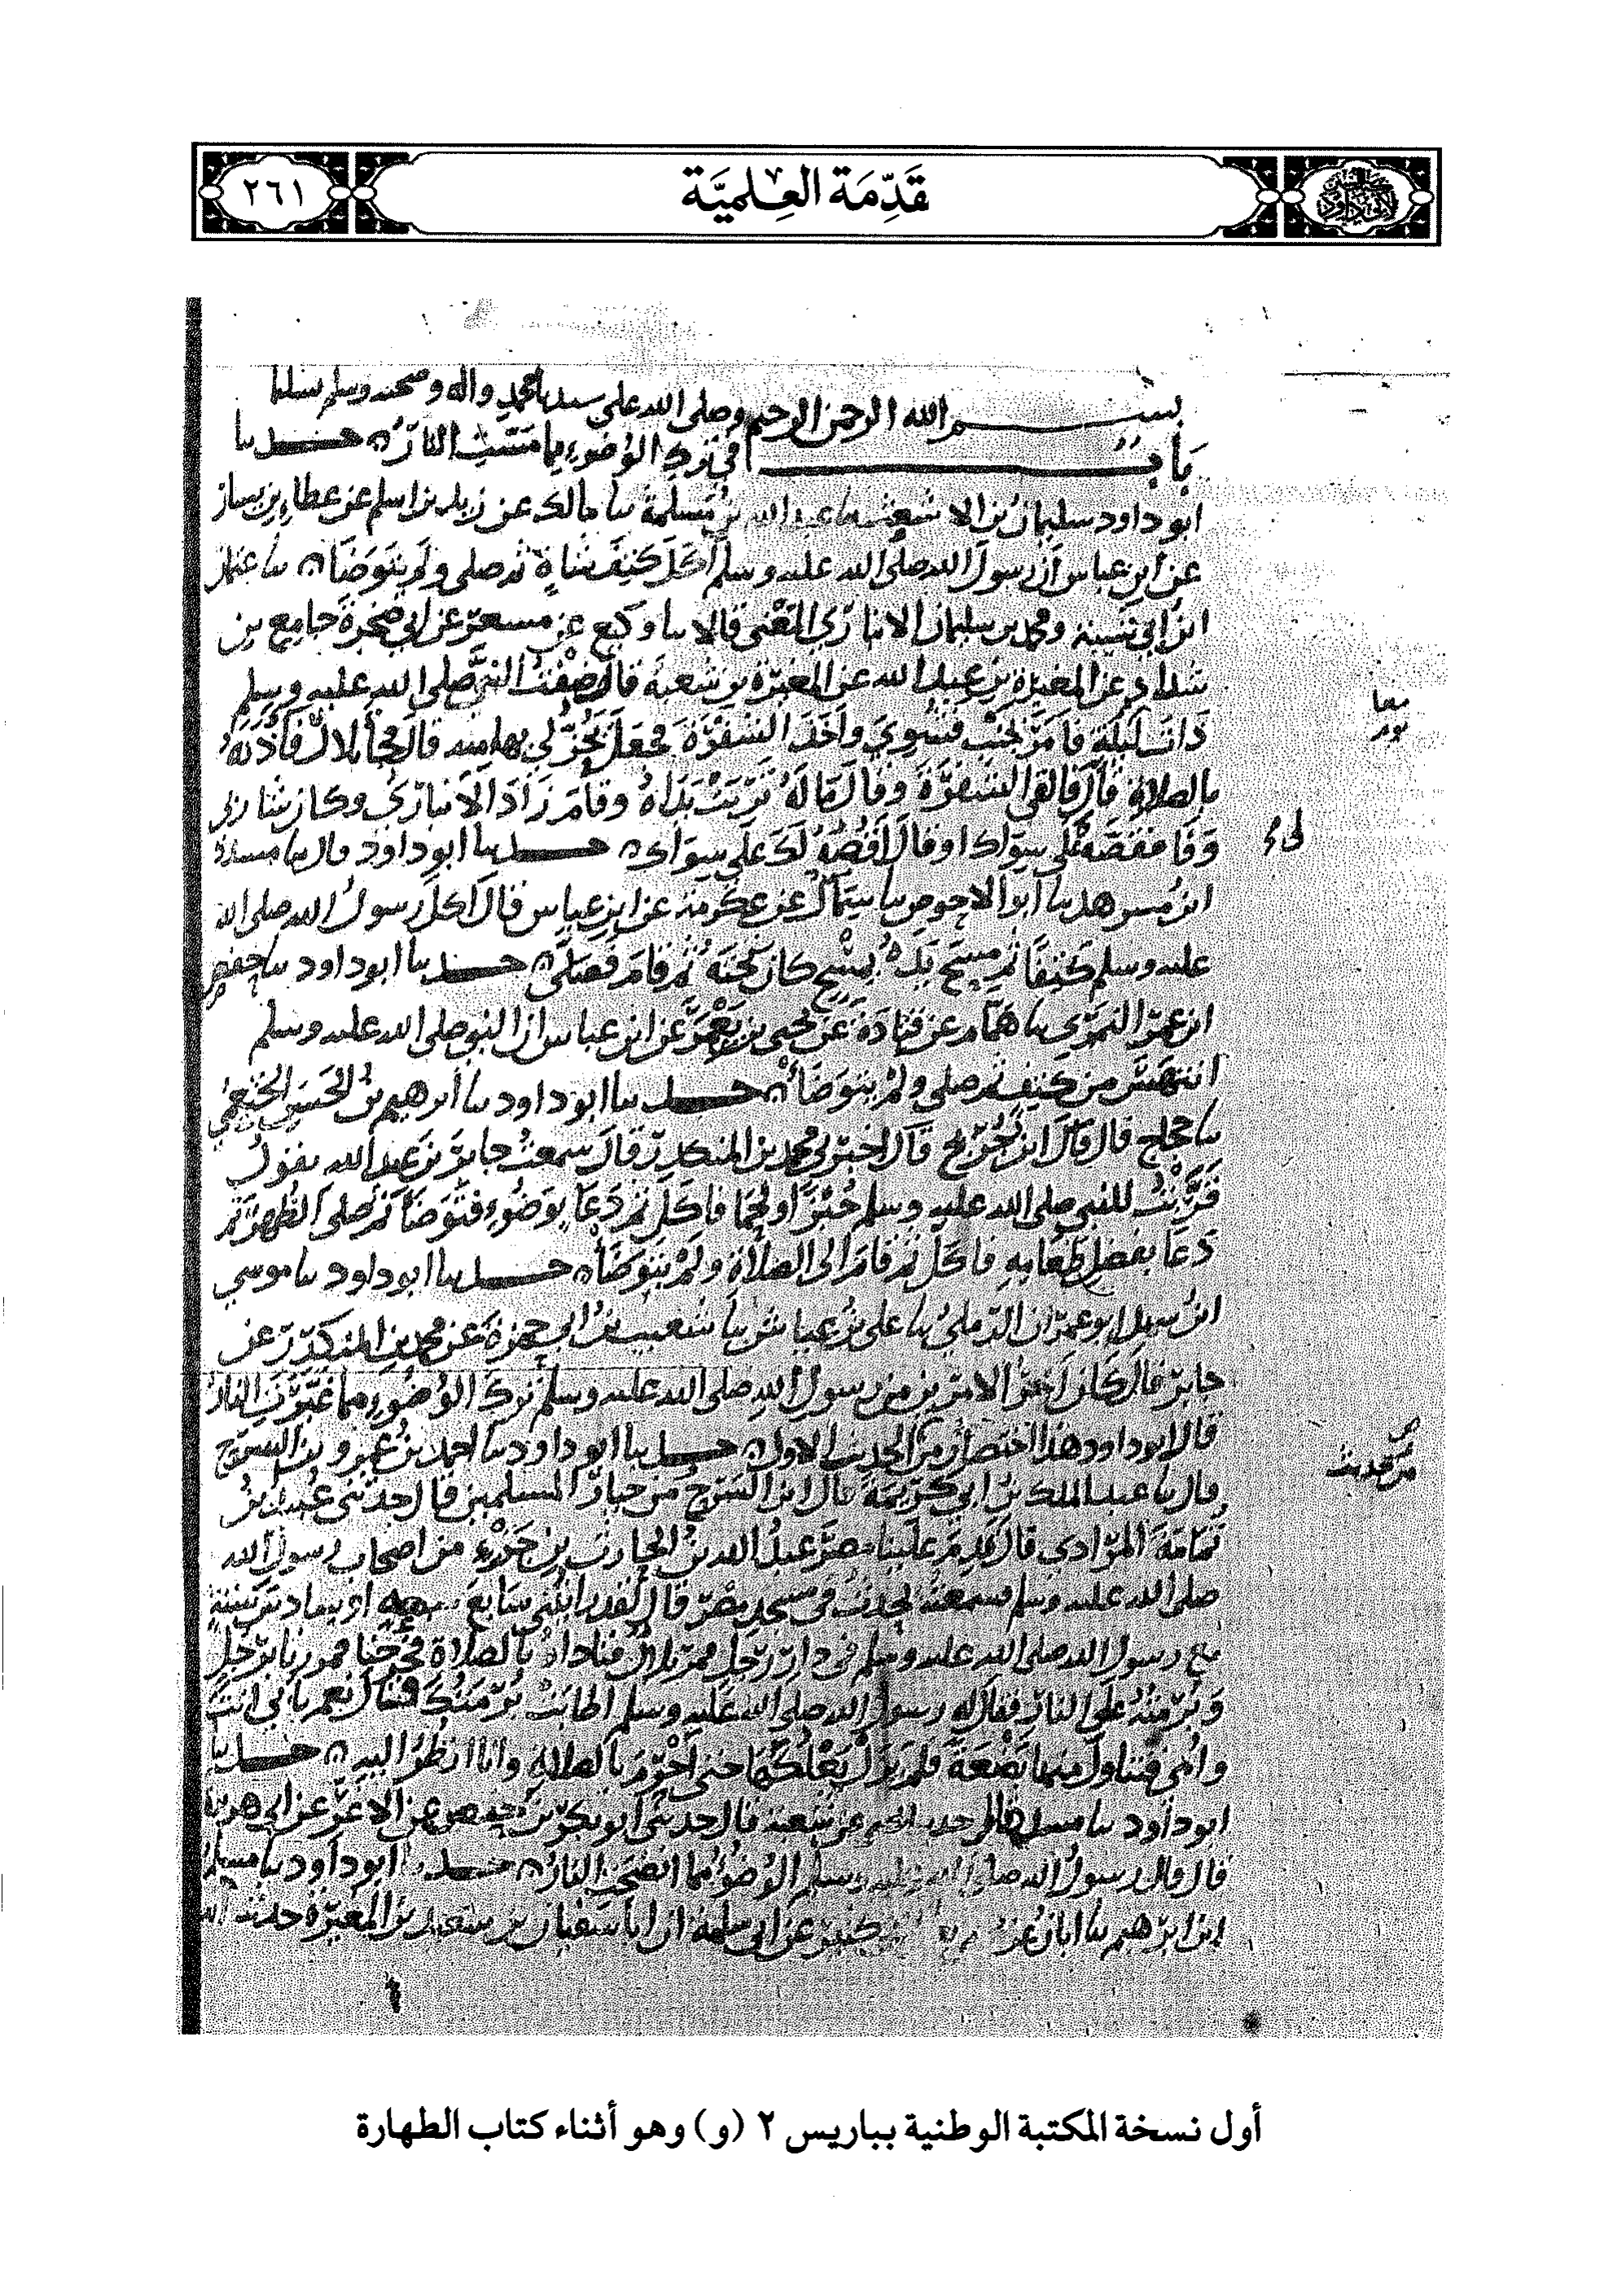 قَدِّمَة العِلميَّة
٢٦١
بسم الله الرحمن الرحيم وصلى الله على سيدنا محمد واله وصحبه وسلم تسليما
بَابٌ في ترك الوُضوءِ مما مَسَّتِ النارُ حدثنا
ابو داود سليمان بن الاشعث نا عبد الله بن مَسلمة نا مالك عن زيد بن اسلم عن عطاءِ بن يسار
عن ابن عباس اَن رسول الله صلى الله عليه وسلم اَكَلَ كتِفَ شاةٍ ثم صلى ولم يتَوَضَّا نا عثمان
ابن ابي شيبة ومحمد بن سليمان الانباري المَعْنى قالا نا وكيع عن مسعر عن ابي صَخرة جامع بن
شداد عن المغيرة بن عبد الله عن المغيرة بن شعبة قال ضِفْتُ النبيَّ صلى الله عليه وسلم
ذاتَ ليلة فامَرَ بجَنْبٍ فشُويَ واَخَذَ الشفْرَةَ فجعَلَ يَحُزُّ لي بها منه قال فجاَ بلالٌ فآذَنَهُ
بالصلاة قال فالقى الشفرَةَ وقال مَا لَهُ تَرِبَتْ يَدَاهُ وقامَ زادَ الانباري وكان شاربي
وَفَا فقصَّهُ لي على سِوَاك او قال اَقُصُّهُ لكَ على سِوَاك حدثنا ابو داود قال نا مسدد
ابن مُسرهد نا ابو الاحوص نا سِمَاك عن عكرمة عن ابن عباس قال اكل رسولُ الله صلى الله
عليه وسلم كتِفًا ثم مسَحَ يدَهُ بمِسْحٍ كان تحتَهُ ثم قامَ فصَلَّى حدثنا ابو داود نا حفص
ابن عمر النمري نا همام عن قتادَة عن يحيى بن يَعْمَر عن ابن عباس ان النبي صلى الله عليه وسلم
انتهَسَ من كتِفٍ ثم صلى ولم يتوَضَّأْ حدثنا ابو داود نا ابرهيم بن الحَسَن الخثعمي
نا حجاج قال قال ابن جُرَيج قال اَخبرَني محمد بن المنكدر قال سمعتُ جابرَ بن عبد الله يقول
قَرَّبْتُ للنبي صلى الله عليه وسلم خبْزًا ولحمًا فاكل ثم دَعَا بوَضُوءٍ فتوَضأ ثم صلى الظُهْرَ ثم
دَعَا بفضلِ طعامِهِ فاكل ثم قامَ الى الصلاة ولم يتوَضَّأْ حدثنا ابو داود نا موسى
ابنُ سهل ابو عمران الرملي نا علي بن عياش نا شعيب بن ابي حمزة عن محمد بن المنكدر عن
جابر قال كان آخِرُ الامرين من رسول الله صلى الله عليه وسلم تركَ الوُضوءِ مما غيَّرتِ النارُ
قال ابو داود هذا اختصار من الحديث الاول حدثنا ابو داود نا احمد بن عمرو بن السرح
قال نا عبد الملك بن ابي كريمة قال ابن السرح من خيار المسلمين قال حدثني عُبيد بن
ثمامة المرادي قال قدِمَ علينا مصرَ عبدُ الله بن الحارث بن جَزْءٍ من اصحاب رسول الله
صلى الله عليه وسلم فسمعته يحدث في مسجدِ مصر قال لقد رايتُني سَابعَ سبعة او سادسَ ستة
مع رسول الله صلى الله عليه وسلم في دار رجل فمر بلالٌ فناداهُ بالصلاة فخرجنا فمررنا برجل
وبُرْمتُهُ على النار فقال له رسول الله صلى الله عليه وسلم اَطابَتْ بُرْمَتُكَ قال نعم بابي انت
وامي فتناولَ منها بَضْعَةً فلم يزَلْ يَعْلُكُهَا حتى اَحْرَمَ بالصلاة وانا اَنظرُ اليه حدثنا
ابو داود نا مسدد قال حدثنا يحيى عن شعبة قال حدثني ابو بكر بن حفص عن الاغر عن ابي هريرة
قال قال رسولُ الله صلى الله عليه وسلم الوُضوُء مما انضجتِ النارُ حدثنا ابو داود نا مسلم
ابن ابرهيم نا ابان عن كثير عن ابي سلمة ان ابا سفيان بن سعيد بن المغيرة حدثه
معا
من حديث
أول نسخة المكتبة الوطنية بباريس ٢ (و) وهو أثناء كتاب الطهارة